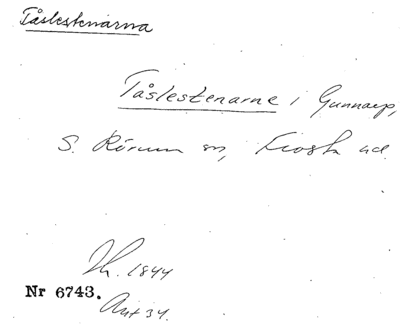 Tåslestenarna
Tåslestenarne i Gunnarp,
S. Rörum sn, Frosta hd.
1844
Nr 6743.